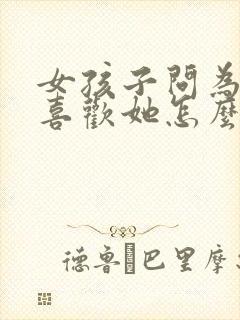 女孩子問為
喜歡她怎麼
德魯·巴里摩